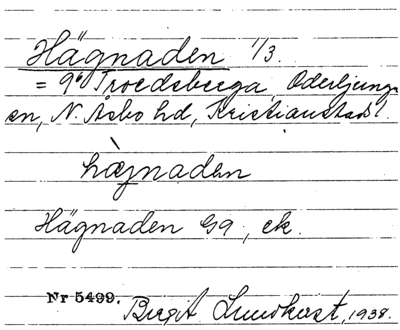 Hägnaden 1/3.
= 9⁶ Troedsberga, Oderljunga
sn, N. Åsbo hd, Kristianstad l.
hàgnaden
Hägnaden Gg, ek.
Nr 5499. Birgit Lundkvist, 1938.